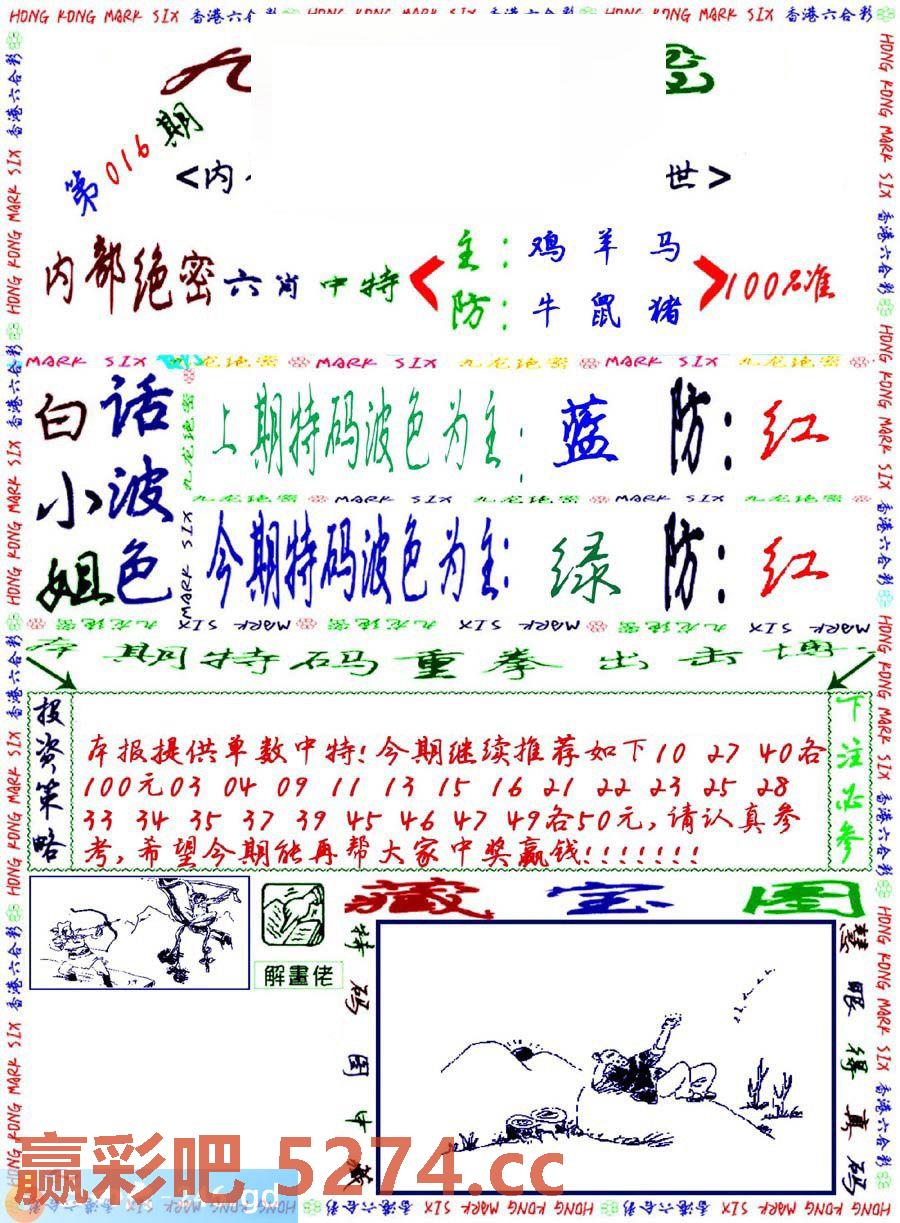 HONG KONG MARK SIX 香港六合彩 HONG KONG MARK SIX 香港六合彩
第016期
<内
世>
内部绝密六肖中特
主：鸡羊马
防：牛鼠猪
100%准
MARK SIX 九龙绝密 MARK SIX 九龙绝密 MARK SIX 九龙绝密
白小姐
话波色
上期特码波色为主：蓝 防：红
九龙绝密 MARK SIX 九龙绝密 MARK SIX 九龙绝密
今期特码波色为主：绿 防：红
MARK SIX 九龙绝密 MARK SIX 九龙绝密 MARK SIX 九龙绝密
期特码重拳出击
投资策略
本报提供单数中特!今期继续推荐如下10 27 40各
100元03 04 09 11 13 15 16 21 22 23 25 28
33 34 35 37 39 45 46 47 49各50元,请认真参
考,希望今期能再帮大家中奖赢钱!!!!!!!
下注必参
解畫佬
藏宝图
特码图中藏
慧眼得真码
赢彩吧 5274.cc